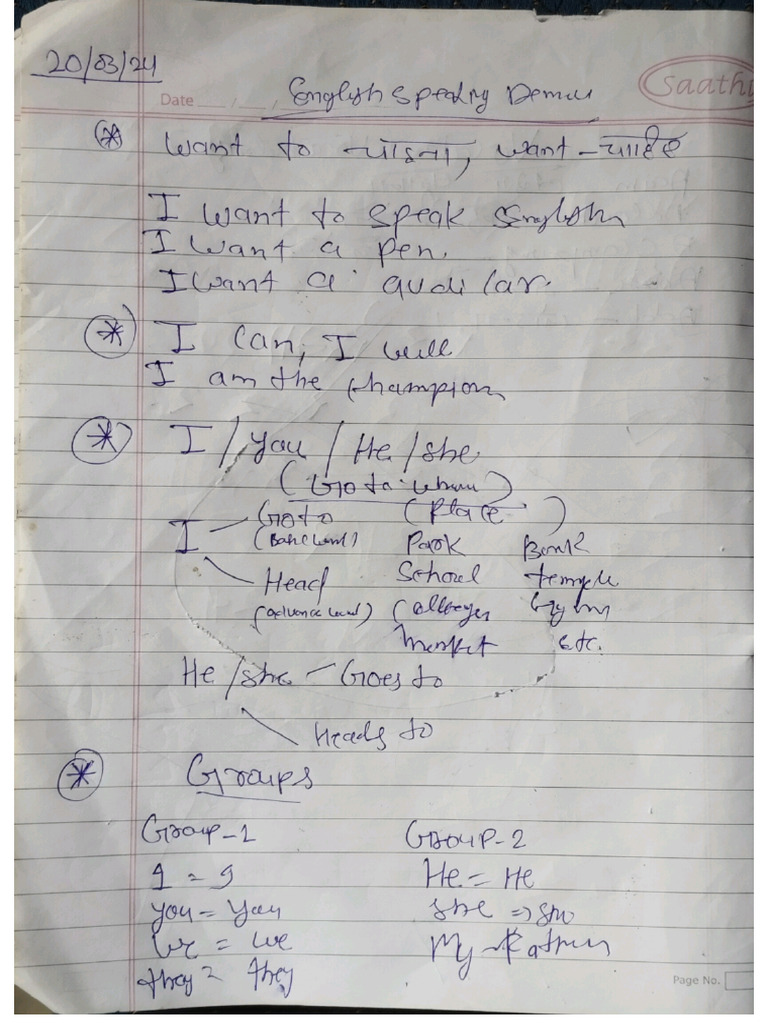 20/03/24
saathi
Date
English Speaking Demo
* Want to चाहना, want - चाहिए
I want to speak English
I want a pen.
I want a audi car.
* I can, I will
I am the champion
* I / you / He / she
(Go to where)
I - Go to (Place)
(Basic level) Park Bank
Head School temple
(advance level) College Gym
market etc.
He / she - Goes to
Heads to
* Groups
Group-1 Group-2
I = I He = He
you = you she => she
we = we My Father
they = they
Page No.